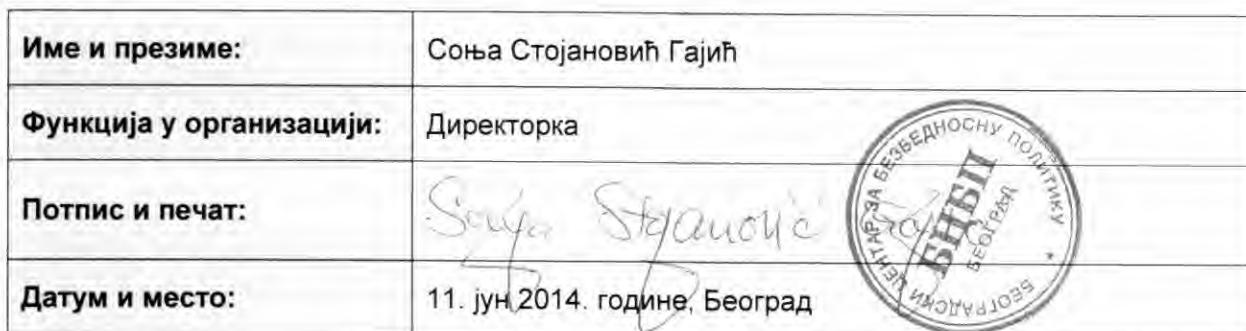 Име и презиме: Соња Стојановић Гајић
Функција у организацији: Директорка
Потпис и печат: Sonja Stojanović Gajić
БЕОГРАДСКИ ЦЕНТАР ЗА БЕЗБЕДНОСНУ ПОЛИТИКУ
БЦБП
БЕОГРАД
БЕОГРАД
Датум и место: 11. јун 2014. године, Београд